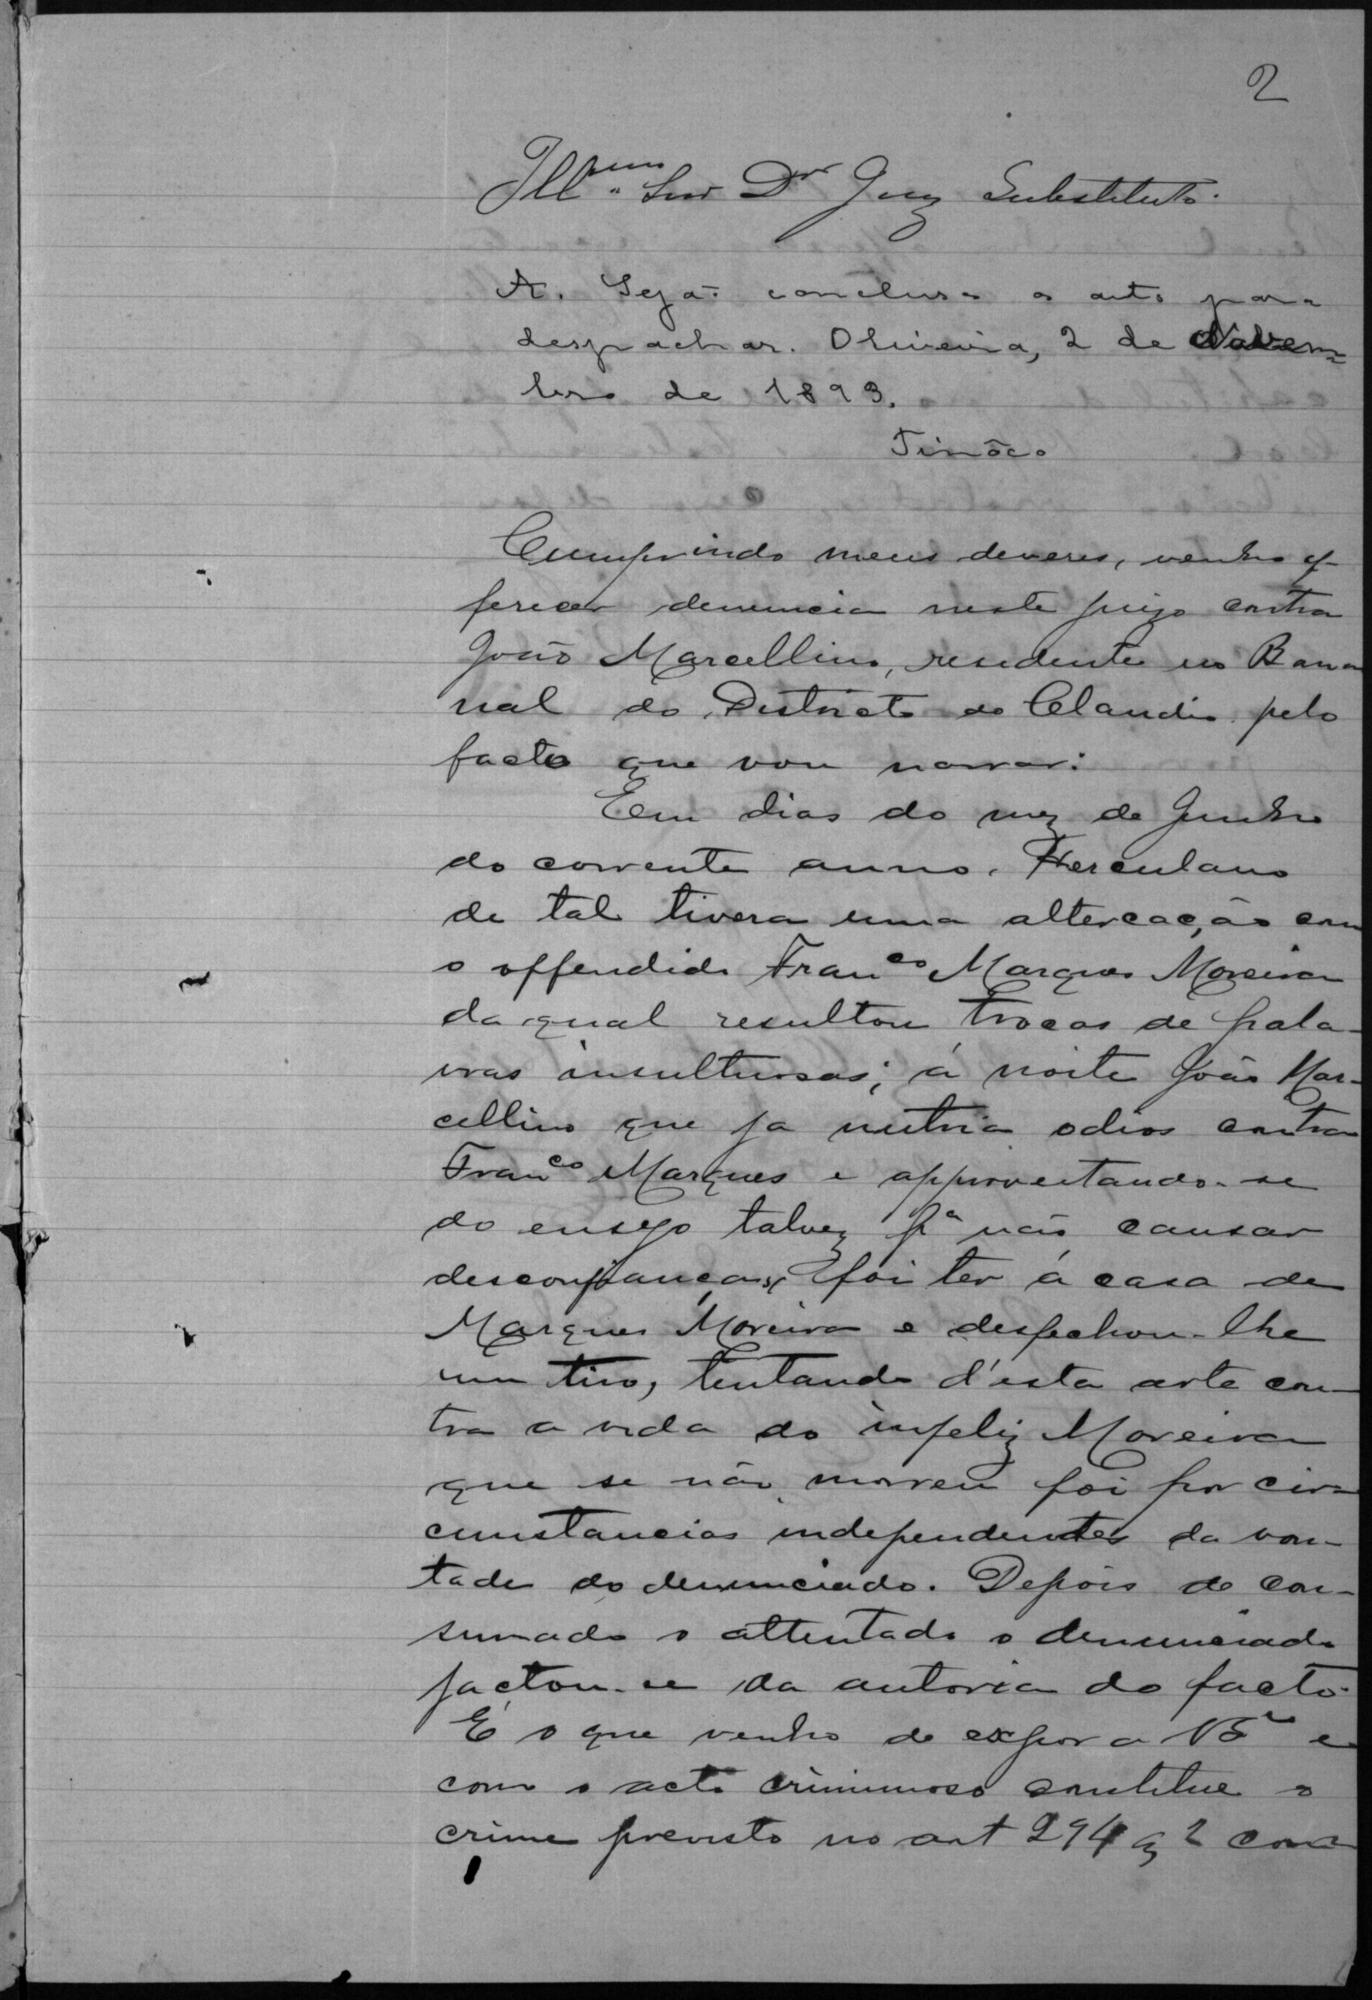 2
Ill.mo Snr Dr Juiz Substituto.
A. Sejão conclusos os autos para
despachar. Oliveira, 2 de Novem-
bro de 1893.
Tinôco
Cumprindo meus deveres, venho of-
ferecer denuncia neste juizo contra
João Marcellino, residente no Bana
nal do Districto do Claudio pelo
facto que vou narrar:
Em dias do mez de Junho
do corrente anno, Herculano
de tal tivera uma altercação com
o offendido Franco Marques Moreira
da qual resultou trocas de pala-
vras insultuosas; á noite João Mar-
cellino que ja nutria odios contra
Franco Marques e approveitando-se
do ensejo talvez pa não causar
desconfianças, foi ter á casa de
Marques Moreira e desfechou-lhe
um tiro, tentando d'esta arte con-
tra a vida do infeliz Moreira
que se não morreu foi por cir-
cunstancias independentes da von-
tade do denunciado. Depois de con-
sumado o attentado o denunciado
jactou-se da autoria do facto.
É o que venho de expor a VS e
como o acto criminoso constitue o
crime previsto no art 294 § 2 com